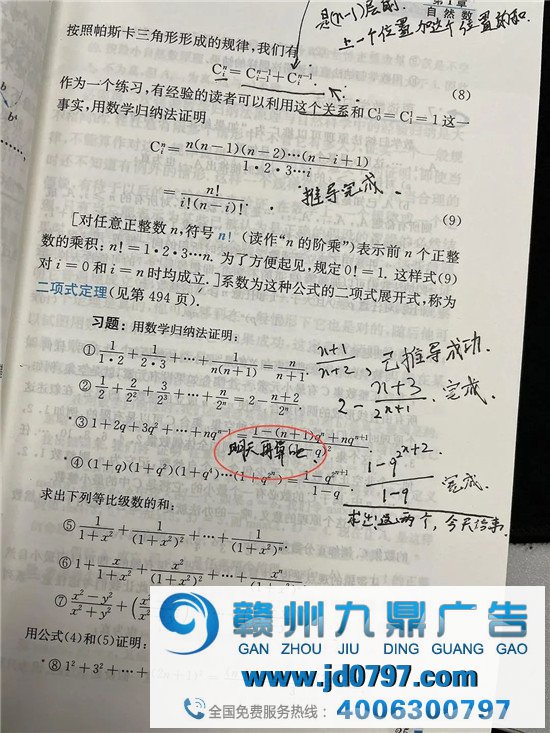 第1章
自然数
是(n-1)层的.
上一个位置加这个位置的和.
按照帕斯卡三角形形成的规律，我们有
Cᵢⁿ = Cᵢ₋₁ⁿ⁻¹ + Cᵢⁿ⁻¹. (8)
作为一个练习，有经验的读者可以利用这个关系和 C₀¹ = C₁¹ = 1 这一
事实，用数学归纳法证明
Cᵢⁿ = n(n−1)(n−2)⋯(n−i+1) / 1·2·3⋯i
= n! / i!(n−i)!. (9)
推导完成.
[对任意正整数 n，符号 n!（读作“n 的阶乘”）表示前 n 个正整
数的乘积：n! = 1·2·3⋯n. 为了方便起见，规定 0! = 1. 这样式(9)
对 i = 0 和 i = n 时均成立.]系数为这种公式的二项式展开式，称为
二项式定理(见第 494 页).
习题：用数学归纳法证明：
① 1/1·2 + 1/2·3 + ⋯ + 1/n(n+1) = n/n+1. n+1/n+2, 已推导成功.
② 1/2 + 2/2² + 3/2³ + ⋯ + n/2ⁿ = 2 − n+2/2ⁿ. 2 − n+3/2ⁿ⁺¹. 完成.
③ 1+2q+3q²+⋯+nqⁿ⁻¹ = 1−(n+1)qⁿ+nqⁿ⁺¹
明天再算吧 q)²
④ (1+q)(1+q²)(1+q⁴)⋯(1+q^2ⁿ) = 1−q^2ⁿ⁺¹ / 1−q. 1−q^2ⁿ⁺² / 1−q 完成.
这两个，今天结束.
求出下列等比级数的和：
⑤ 1/1+x² + 1/(1+x²)² + ⋯ + 1/(1+x²)ⁿ.
⑥ 1 + x/1+x² + x²/(1+x²)² + ⋯ + xⁿ
⑦ x²−y²/x²+y² + (x²
用公式(4)和(5)证明：
⑧ 1² + 3² + ⋯ + (2n+1)² =
赣州九鼎广告
GAN ZHOU JIU DING GUANG GAO
www.jd0797.com
全国免费服务热线：4006300797